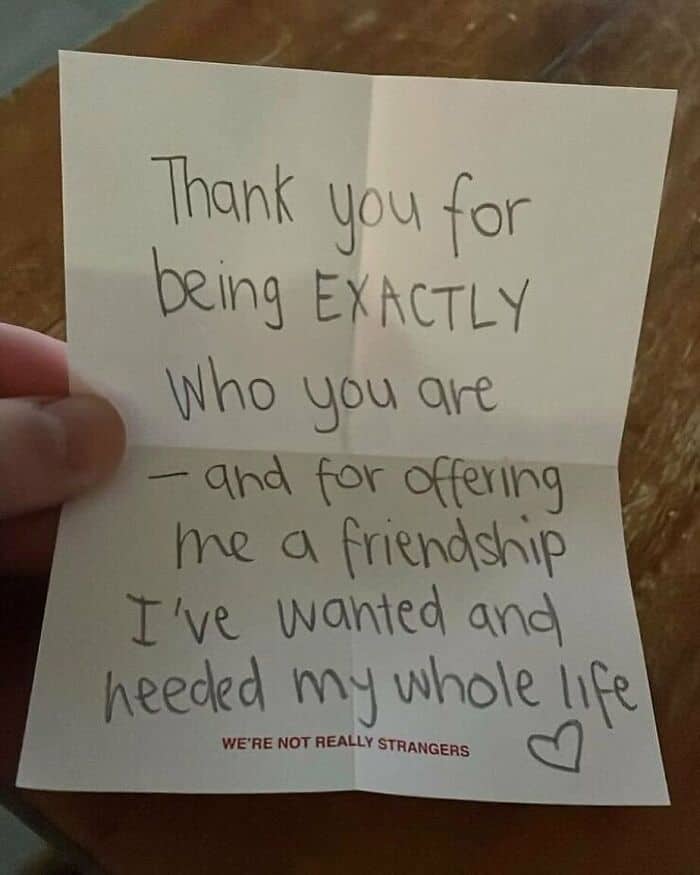 Thank you for
being EXACTLY
who you are
— and for offering
me a friendship
I've wanted and
needed my whole life
WE'RE NOT REALLY STRANGERS